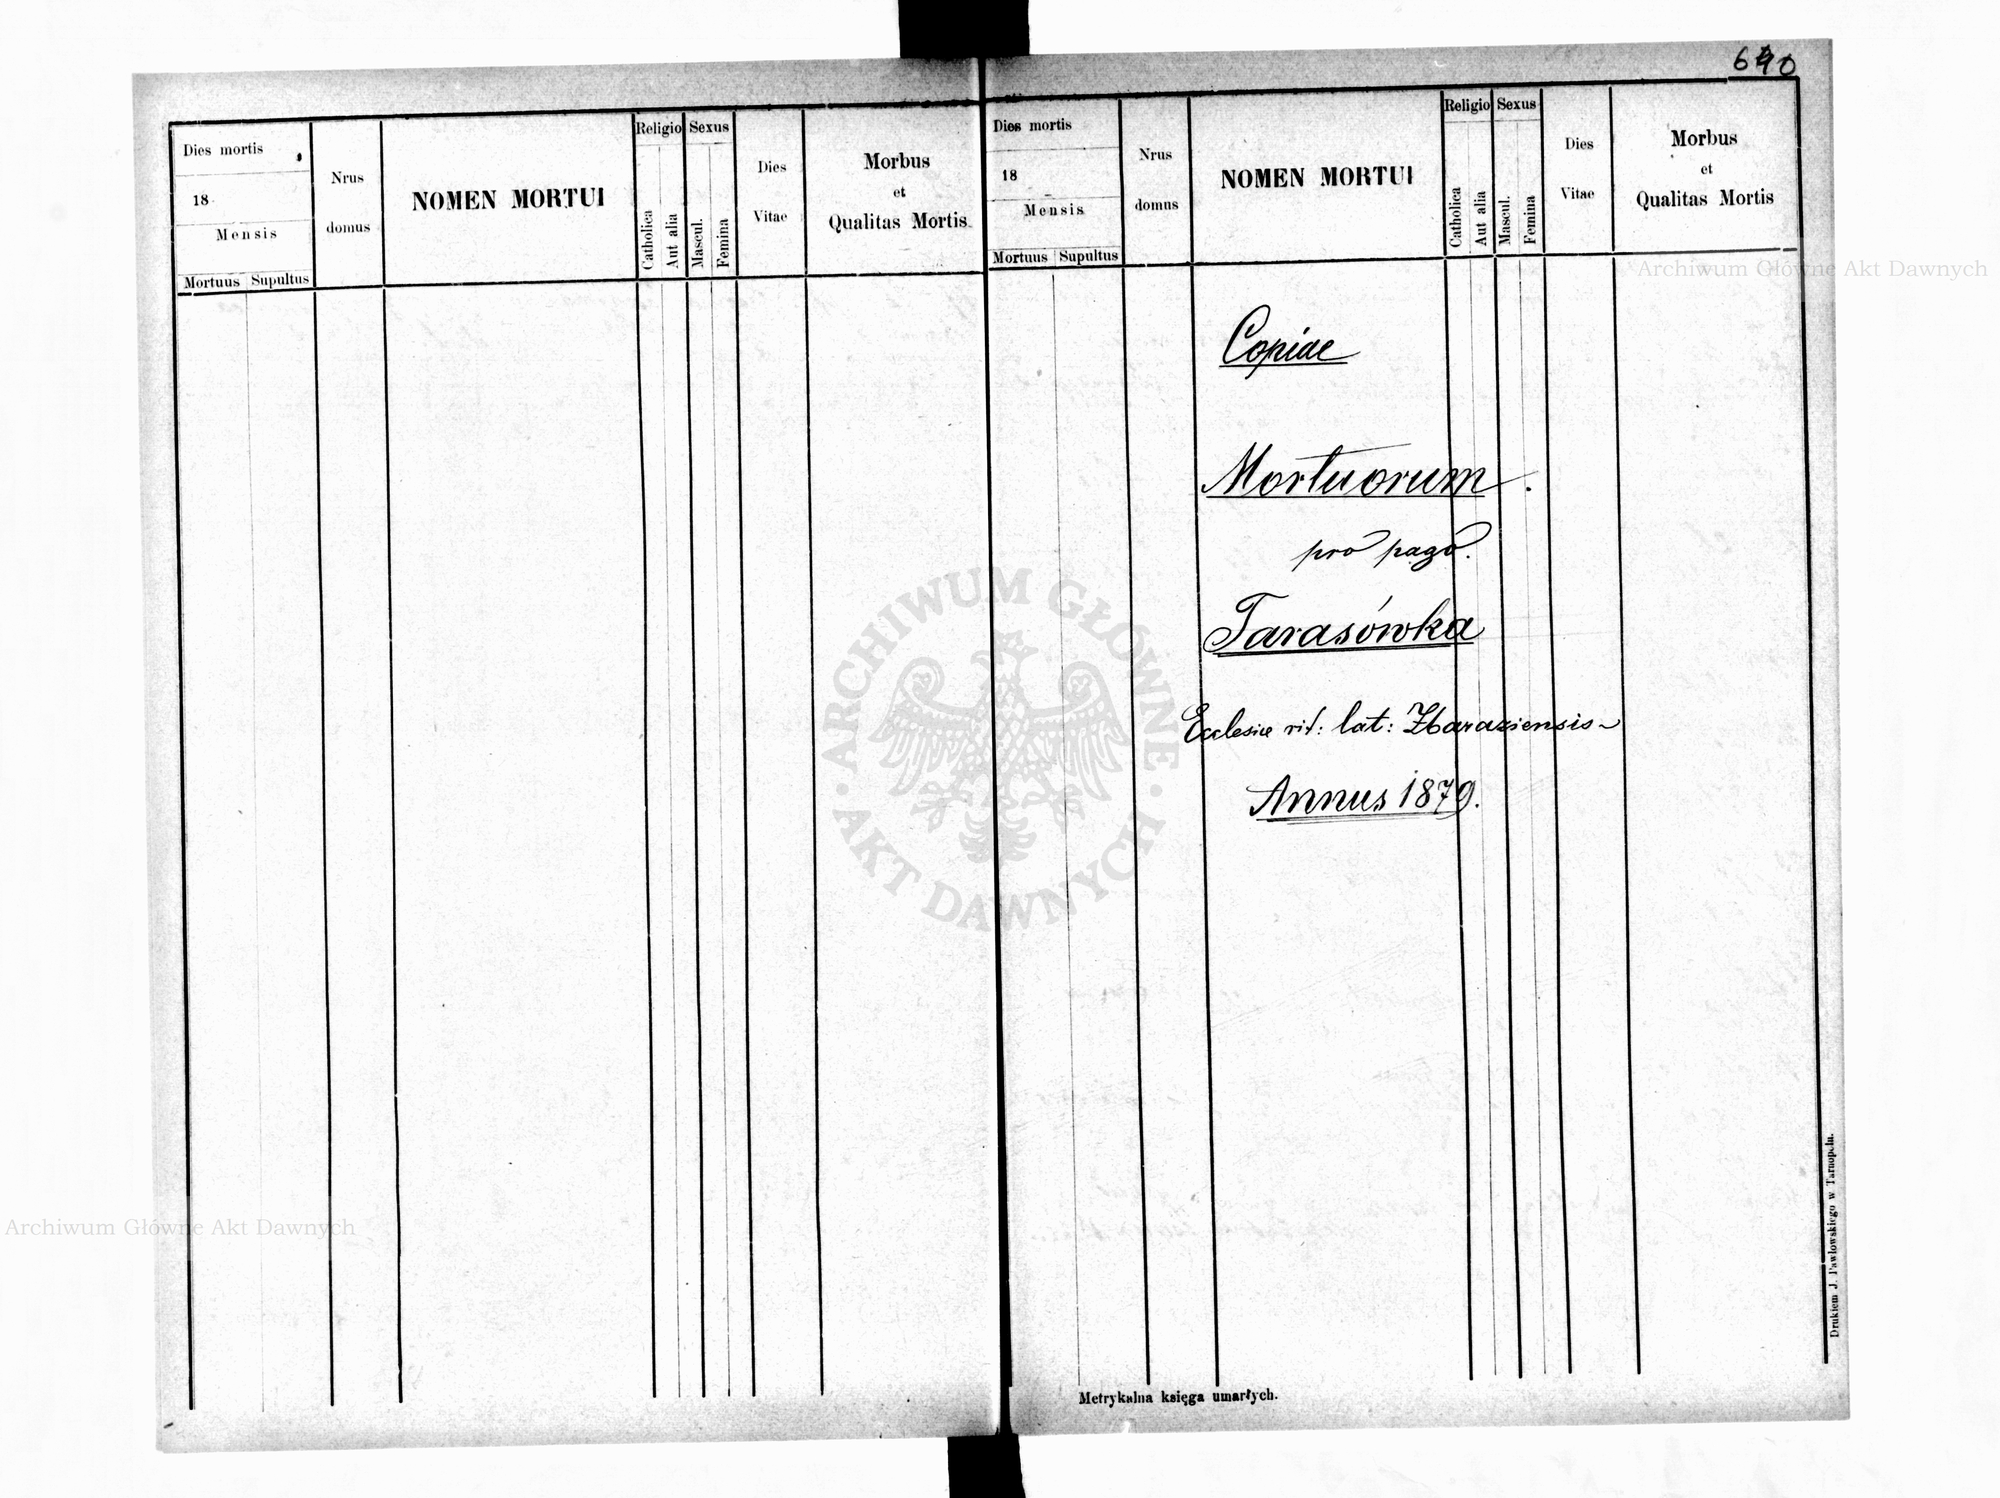 Dies mortis
18
Mensis
Mortuus Supultus
Nrus
domus
NOMEN MORTUI
Religio
Catholica
Aut alia
Sexus
Mascul.
Femina
Dies
Vitae
Morbus
et
Qualitas Mortis
Dies mortis
18
Mensis
Mortuus Supultus
Nrus
domus
NOMEN MORTUI
Religio
Catholica
Aut alia
Sexus
Mascul.
Femina
Dies
Vitae
Morbus
et
Qualitas Mortis
Copiae
Mortuorum.
pro pago.
Tarasówka
Ecclesiae rit: lat: Zbaraziensis
Annus 1879.
Metrykalna księga umarłych.
Drukiem J. Pawłowskiego w Tarnopolu.
ARCHIWUM GŁÓWNE AKT DAWNYCH
Archiwum Główne Akt Dawnych
Archiwum Główne Akt Dawnych